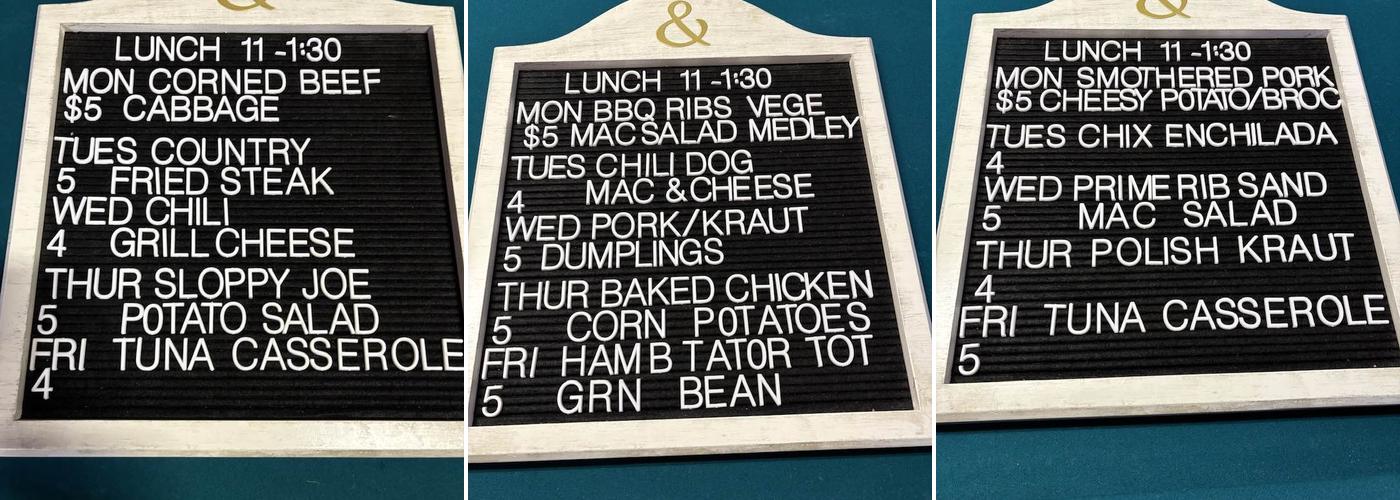 &
LUNCH 11-1:30
MON CORNED BEEF
$5 CABBAGE
TUES COUNTRY
5 FRIED STEAK
WED CHILI
4 GRILL CHEESE
THUR SLOPPY JOE
5 POTATO SALAD
FRI TUNA CASSEROLE
4
&
LUNCH 11-1:30
MON BBQ RIBS VEGE
$5 MAC SALAD MEDLEY
TUES CHILI DOG
4 MAC & CHEESE
WED PORK/KRAUT
5 DUMPLINGS
THUR BAKED CHICKEN
5 CORN POTATOES
FRI HAM B TATOR TOT
5 GRN BEAN
&
LUNCH 11-1:30
MON SMOTHERED PORK
$5 CHEESY POTATO/BROC
TUES CHIX ENCHILADA
4
WED PRIME RIB SAND
5 MAC SALAD
THUR POLISH KRAUT
4
FRI TUNA CASSEROLE
5